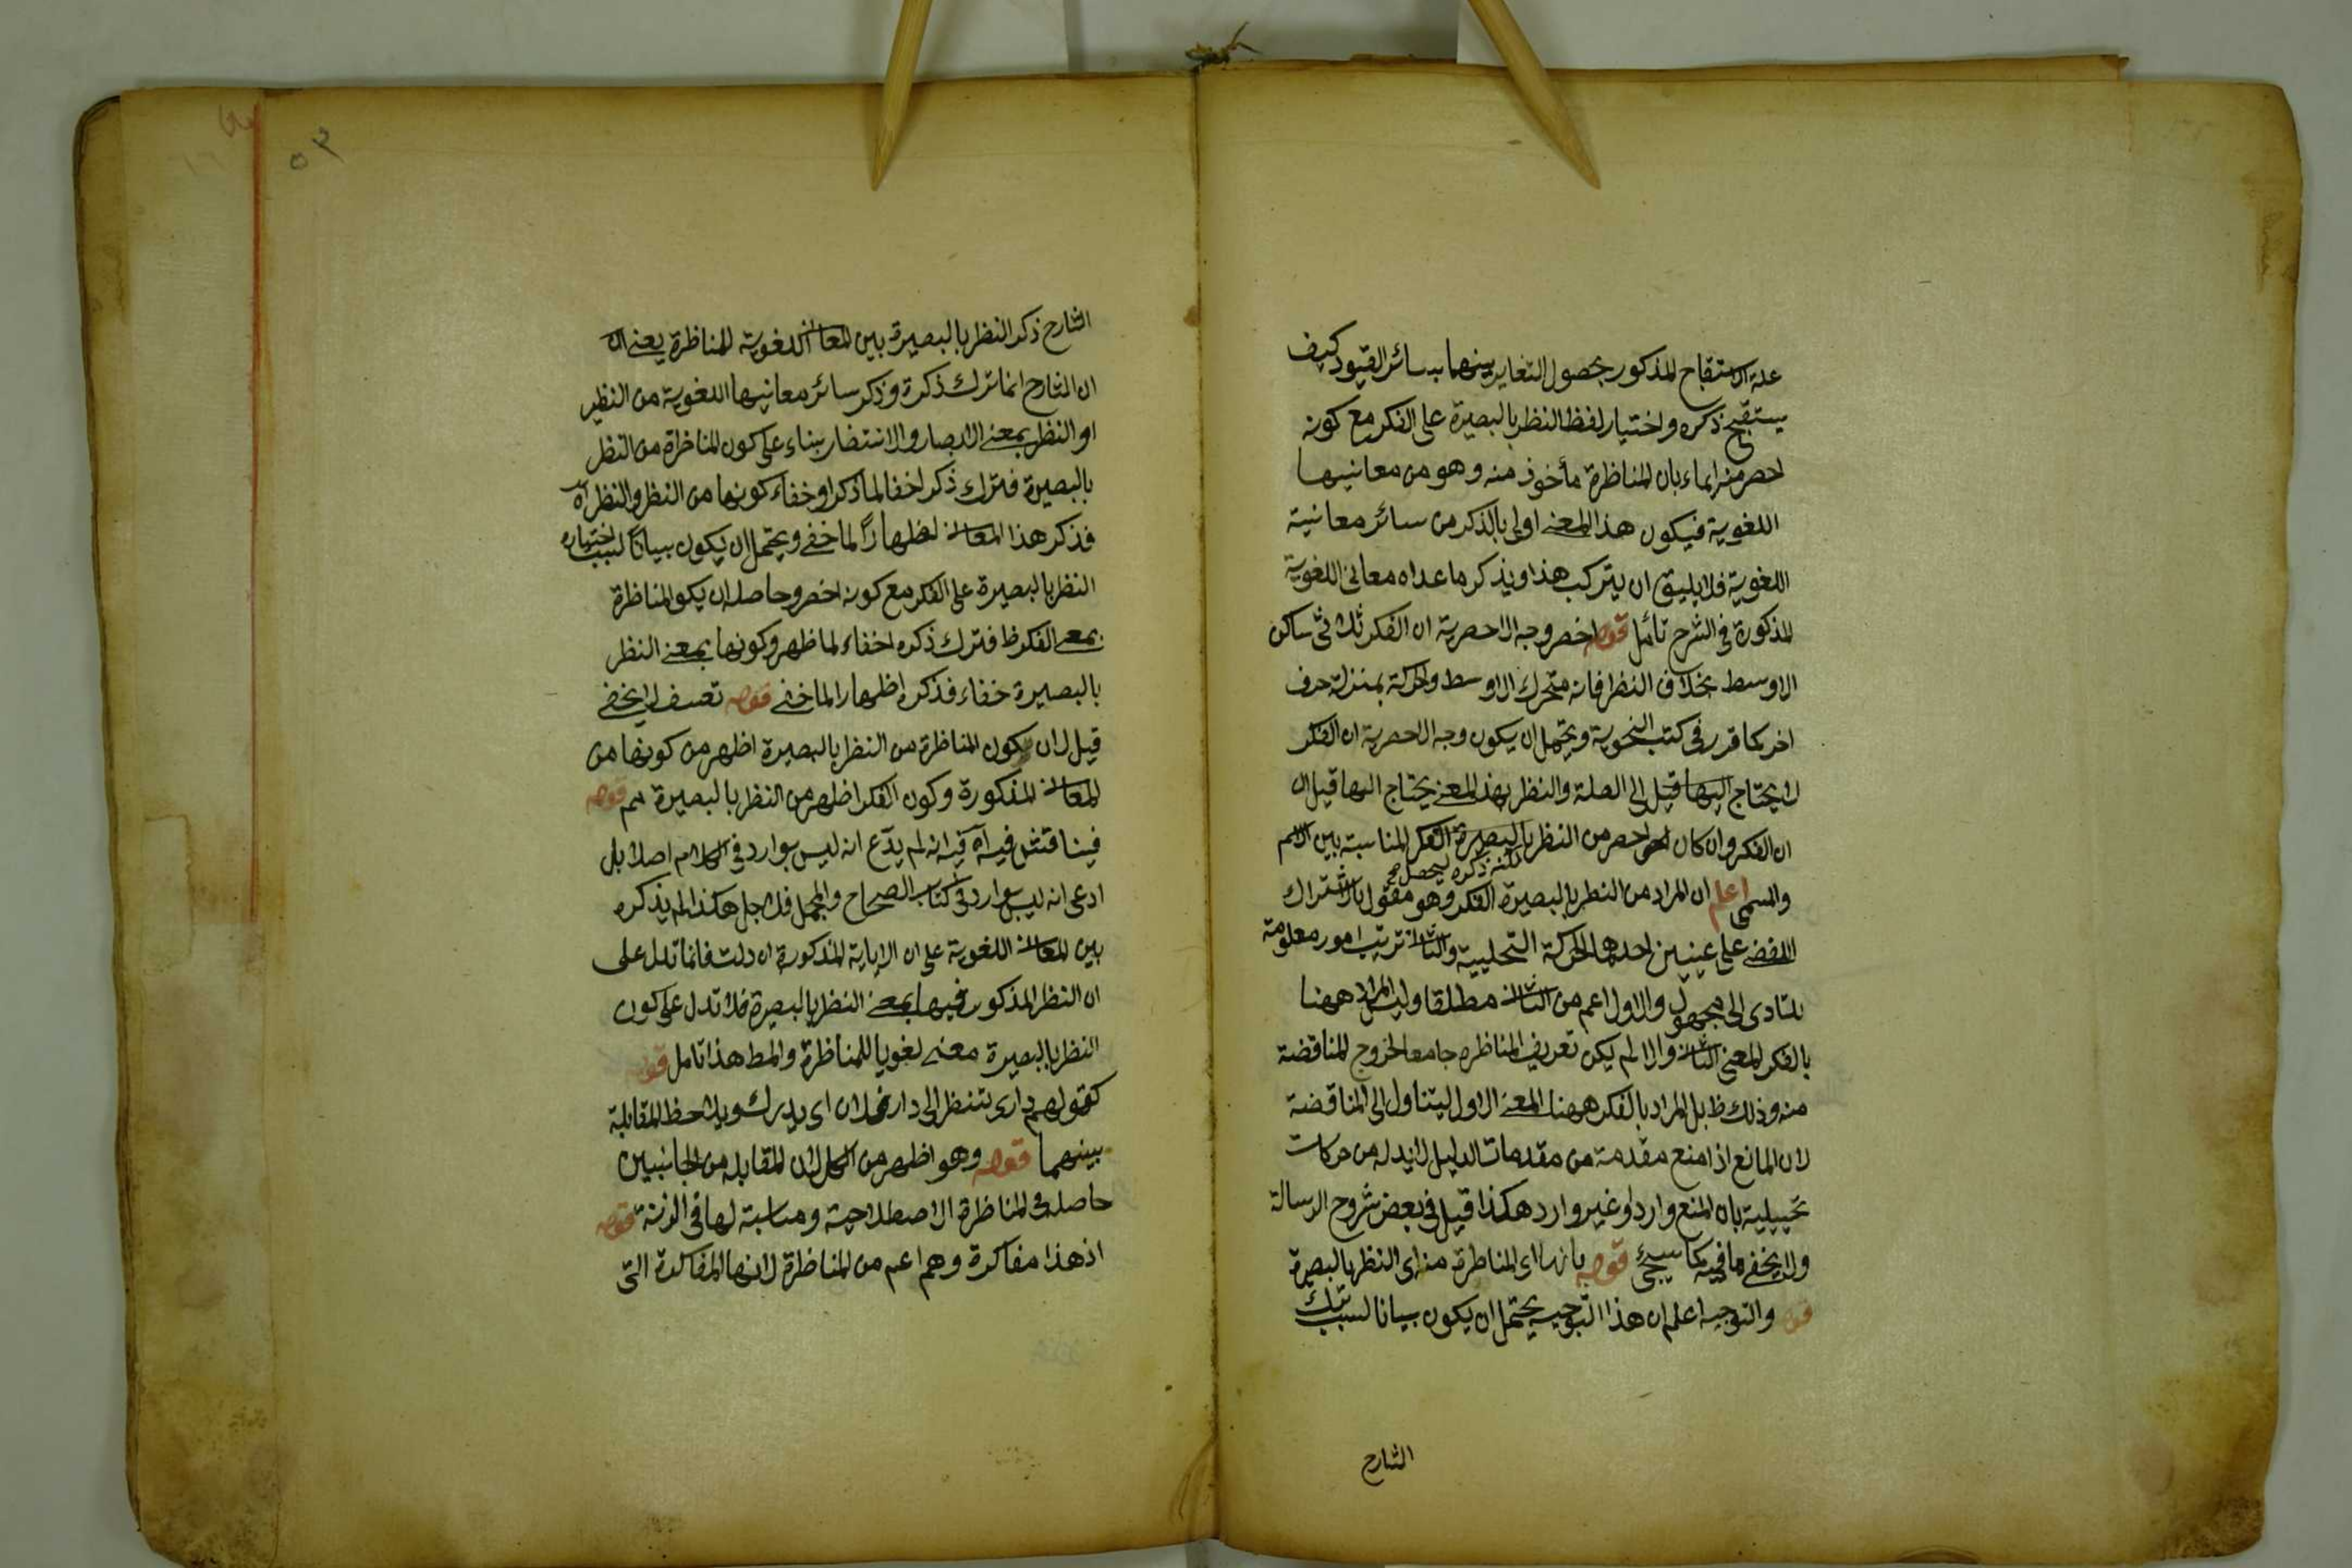 علة الاستقباح المذكور بحصول التغاير بينهما بسائر القيود كيف
يستقبح ذكره واختيار لفظ النظر بالبصيرة على الفكر مع كونه
اخصر منه ايماء بان المناظرة مأخوذ منه وهو من معانيها
اللغوية فيكون هذا المعنى اولى بالذكر من سائر معانية
اللغوية فلا يليق ان يترك هذا ويذكر ماعداه معانى اللغوية
المذكورة في الشرح تأمل قوله اخصر وجه الاخصرية ان الفكر ثلاثى ساكن
الاوسط بخلاف النظر فانه متحرك الاوسط والحركة بمنزلة حرف
اخر كما قرر فى كتب النحوية ويحتمل ان يكون وجه الاخصرية ان الفكر
لا يحتاج اليها قيل الى الصلة والنظر بهذا المعنى يحتاج اليها قيل ان
ان الفكر وان كان اخصر من النظر بالبصيرة الفكر المناسبة بين الاسم
لكنه ذكره ليحصل صح
والمسمى اعلم ان المراد من النظر بالبصيرة الفكر وهو مقول بالاشتراك
اللفضى على عنيين احدهما الحركة التخليية والثانى ترتيب امور معلومة
للتادى الى مجهول والاول اعم من الثانى مطلقا وليس المراد ههنا
بالفكر المعنى الثانى والا لم يكن تعريف المناظره جامعا لخروج المناقضة
منه وذلك ظ بل المراد بالفكر ههنا المعنى الاول ليتناول الى المناقضة
لان المانع اذا منع مقدمة من مقدمات الدليل لابد له من حركات
تخييلية بان المنع وارد او غير وارد هكذا قيل فى بعض شروح الرسالة
ولا يخفى ما فيه كما سيجئ قوله بانها اى المناظرة منه اى النظر بالبصيرة
قوله والتوجيه اعلم ان هذا التوجيه يحتمل ان يكون بيانا لسبب ترك
الشارح
٥٣
الشارح ذكر النظر بالبصيرة بين المعانى اللغوية للمناظرة يعنى ان
ان الشارح انما ترك ذكرة وذكر سائر معانيها اللغوية من النظير
او النظر بمعنى الابصار والانتضار بناء على كون المناظرة من النظر
بالبصيرة فترك ذكر اخفا لما ذكر او خفاء كونها من النظر والنظر اه
فذكر هذا المعانى لظهاراً لما خفى ويحتمل ان يكون بيانا لسبب اختياره
النظر بالبصيرة على الفكر مع كونه اخصر وحاصله ان يكو المناظرة
بمعى الفكر ظ فترك ذكره اخفاء لما ظهر وكونها بمعنى النظر
بالبصيرة خفاء فذكره اظهارا لما خفى قوله تعسف لا يخفى
قيل لان يكون المناظرة من النظر بالبصيرة اظهر من كونها من
المعانى المذكورة وكون الفكر اظهر من النظر بالبصيرة مم قوله
فيناقش فيه آه فيه انه لم يدّع انه ليس بوارد فى الكلام اصلا بل
ادعى انه ليس بوارد فى كتاب الصحاح والمجمل فلاجل هكذا لم يذكره
بين المعانى اللغوية على ان الاياية المذكورة ان دلت فانما تدل على
ان النظر المذكور فيها بمعنى النظر بالبصيرة فلا تدل على كون
النظر بالبصيرة معنى لغويا للمناظرة والمط هذا تامل قوله
كقولهم دارى تنظر الى دار فلان اى يدرك ويلاحظ المقابلة
بينهما قوله وهو اظهر من الكل لان المقابله من الجانبين
حاصله فى المناظرة الاصطلاحية ومناسبة لها فى الزنة قوله
اذ هذا مفاكرة وهم اعم من المناظرة لانها المفاكرة التى